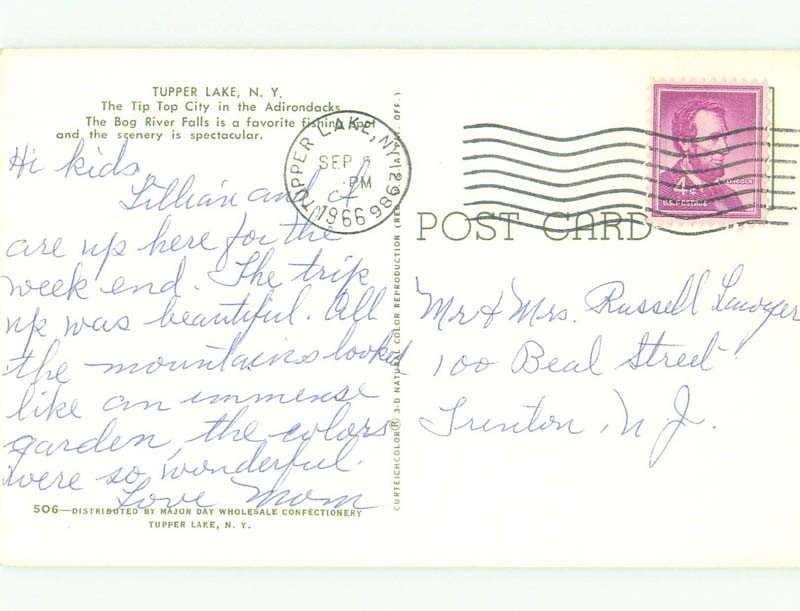 TUPPER LAKE, N. Y.
The Tip Top City in the Adirondacks
The Bog River Falls is a favorite fishing spot
and the scenery is spectacular.
Hi kids
Lillian and I
are up here for the
week end. The trip
up was beautiful. All
the mountains looked
like an immense
garden, the colors
were so wonderful.
Love Mom
506—DISTRIBUTED BY MAJOR DAY WHOLESALE CONFECTIONERY
TUPPER LAKE, N. Y.
CURTEICHCOLOR® 3-D NATURAL COLOR REPRODUCTION (REG. U.S.A. PAT. OFF.)
TUPPER LAKE, NY 12986
SEP
PM
1966
4¢
LINCOLN
U.S. POSTAGE
POST CARD
Mr & Mrs. Russell Sawyer
100 Beal Street
Trenton, N J.